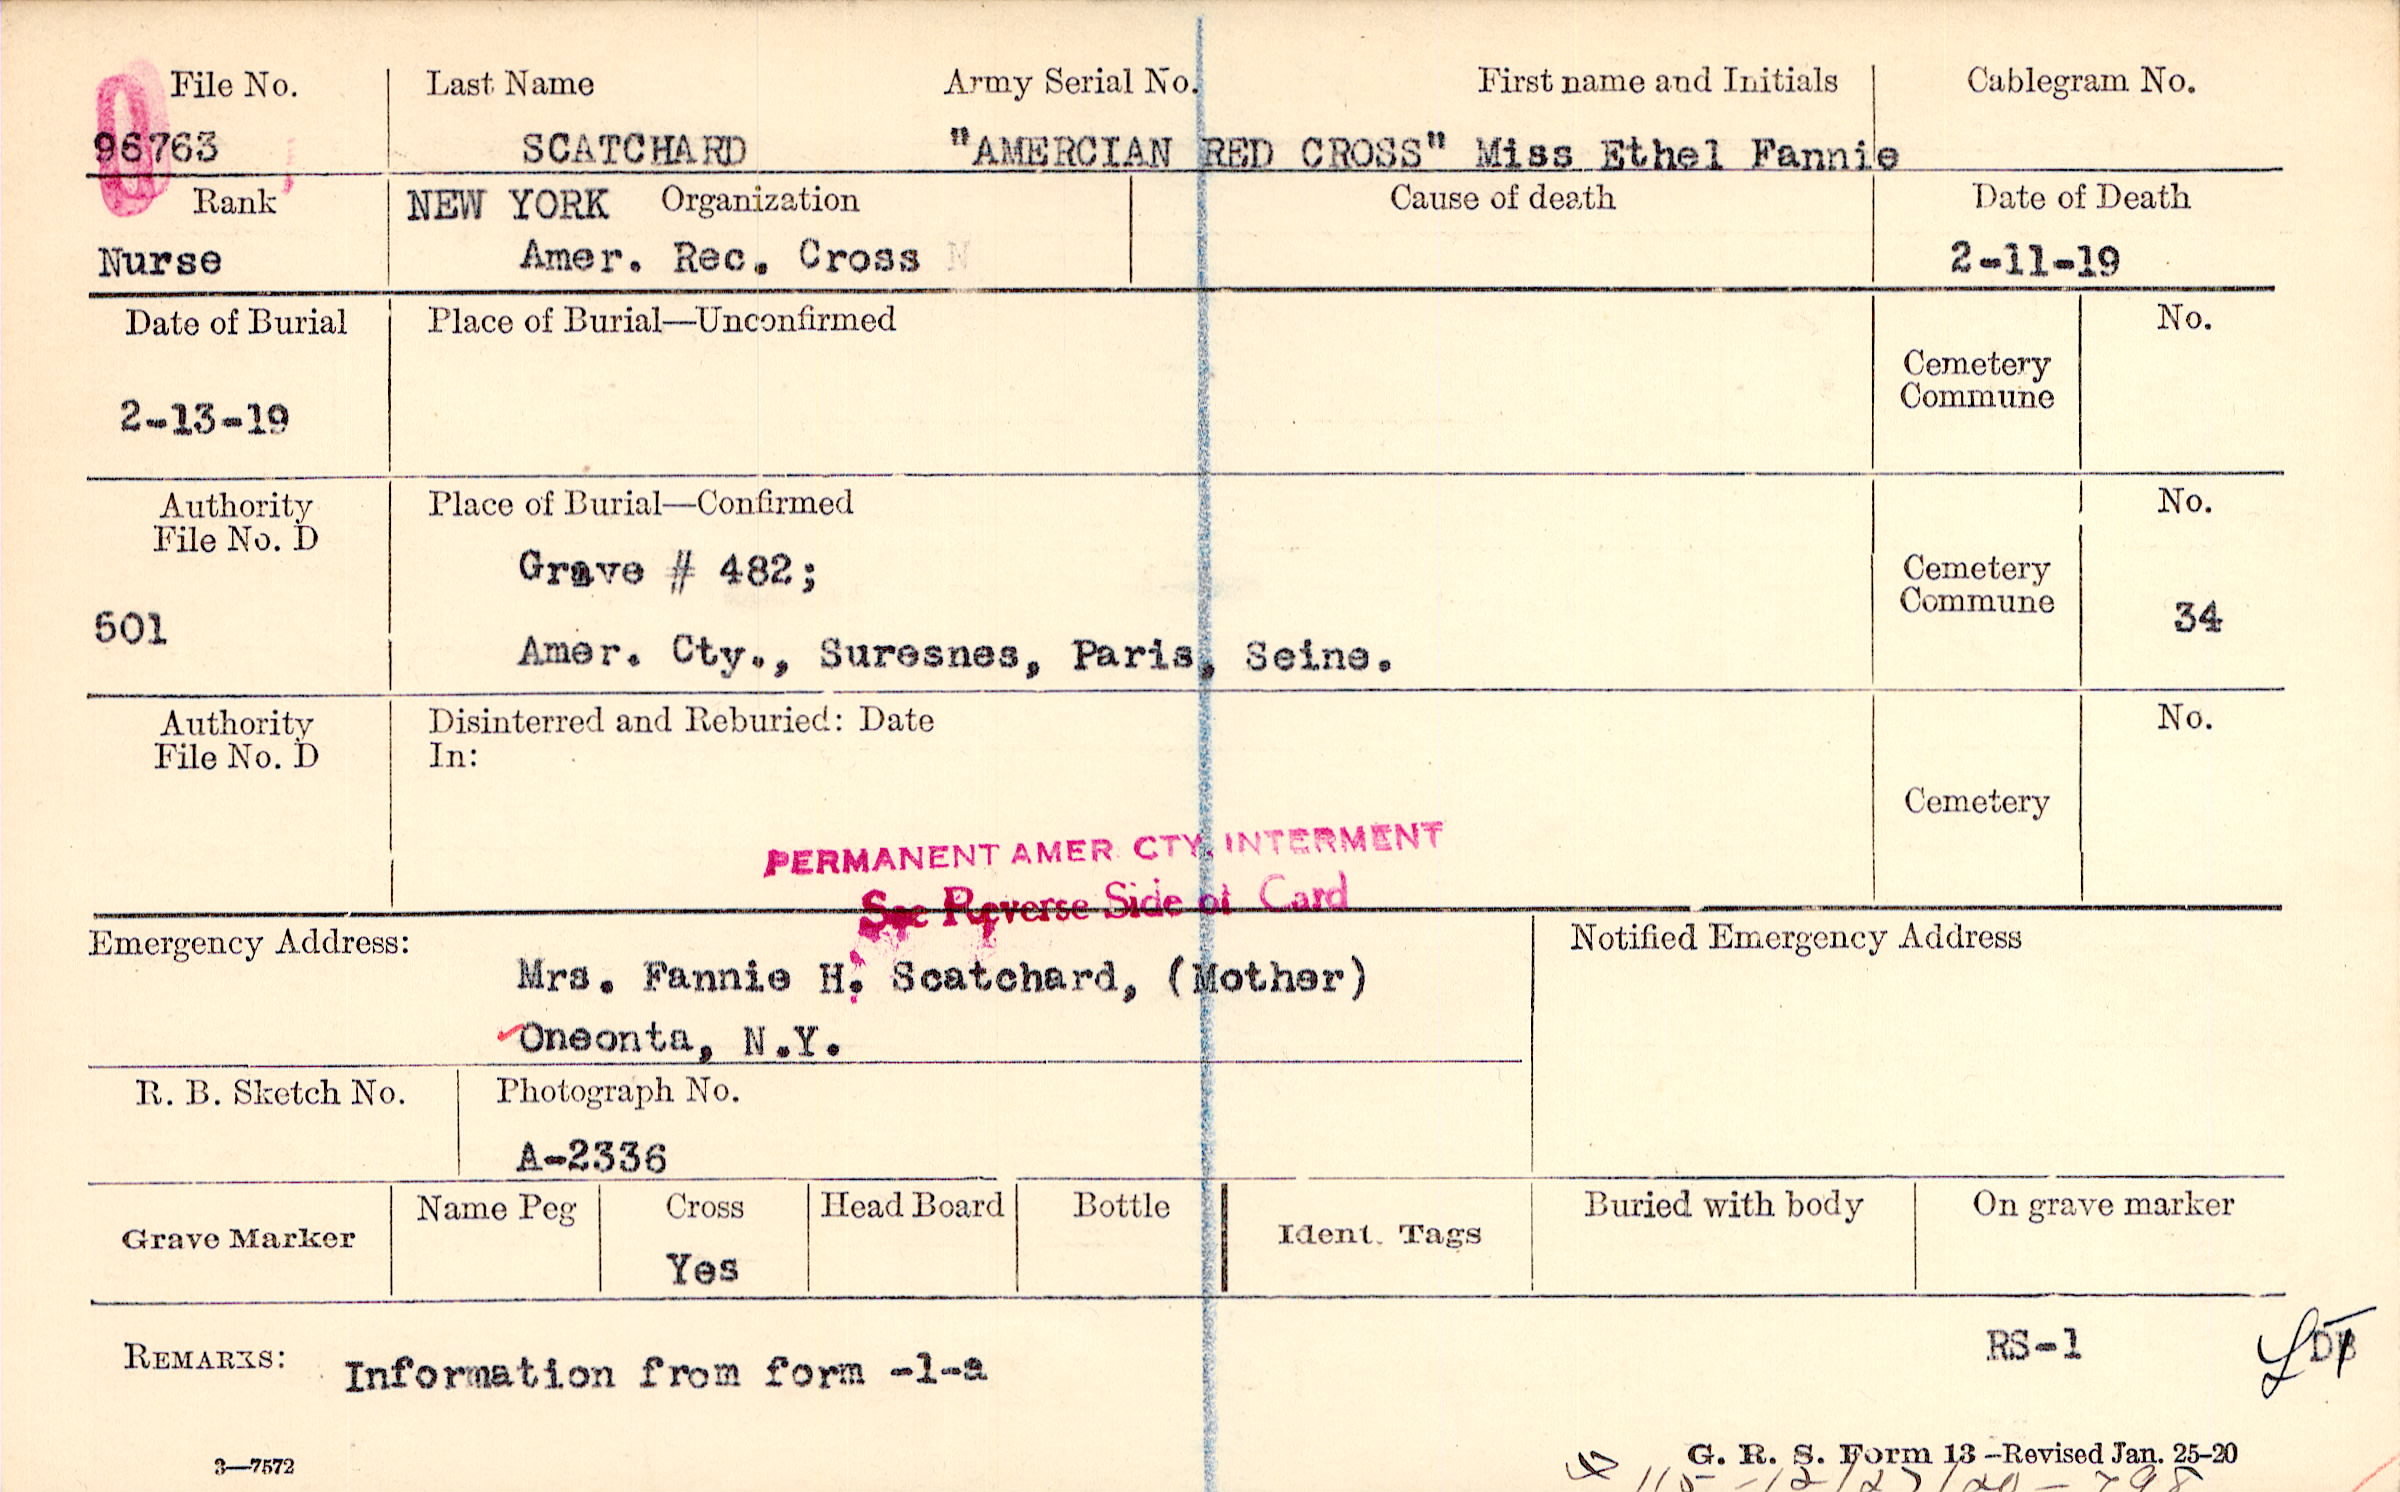 File No. Last Name Army Serial No. First name and Initials Cablegram No.
96763 SCATCHARD "AMERCIAN RED CROSS" Miss Ethel Fannie
Rank NEW YORK Organization Cause of death Date of Death
Nurse Amer. Rec. Cross 2-11-19
Date of Burial Place of Burial—Unconfirmed No.
Cemetery
Commune
2-13-19
Authority Place of Burial—Confirmed No.
File No. D
Grave # 482;
Cemetery
Commune
501 34
Amer. Cty., Suresnes, Paris, Seine.
Authority Disinterred and Reburied: Date No.
File No. D In:
Cemetery
PERMANENT AMER. CTY. INTERMENT
See Reverse Side of Card
Emergency Address: Notified Emergency Address
Mrs. Fannie H. Scatchard, (Mother)
Oneonta, N.Y.
R. B. Sketch No. Photograph No.
A-2336
Grave Marker Name Peg Cross Head Board Bottle Ident. Tags Buried with body On grave marker
Yes
REMARKS: Information from form -1-a RS-1
3—7572 G. R. S. Form 13—Revised Jan. 25-20